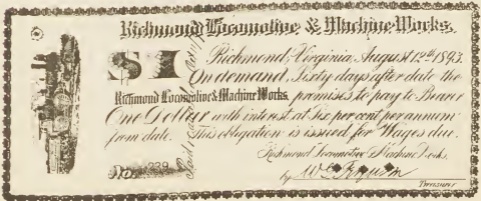 Richmond Locomotive & Machine Works.
$1
Richmond, Virginia, August 12th 1893.
On demand, Sixty days after date the
Richmond Locomotive & Machine Works. promises to pay to Bearer
One Dollar with interest at six per cent per annum
from date. This obligation is issued for Wages due.
Richmond Locomotive & Machine Works.
by
Treasurer